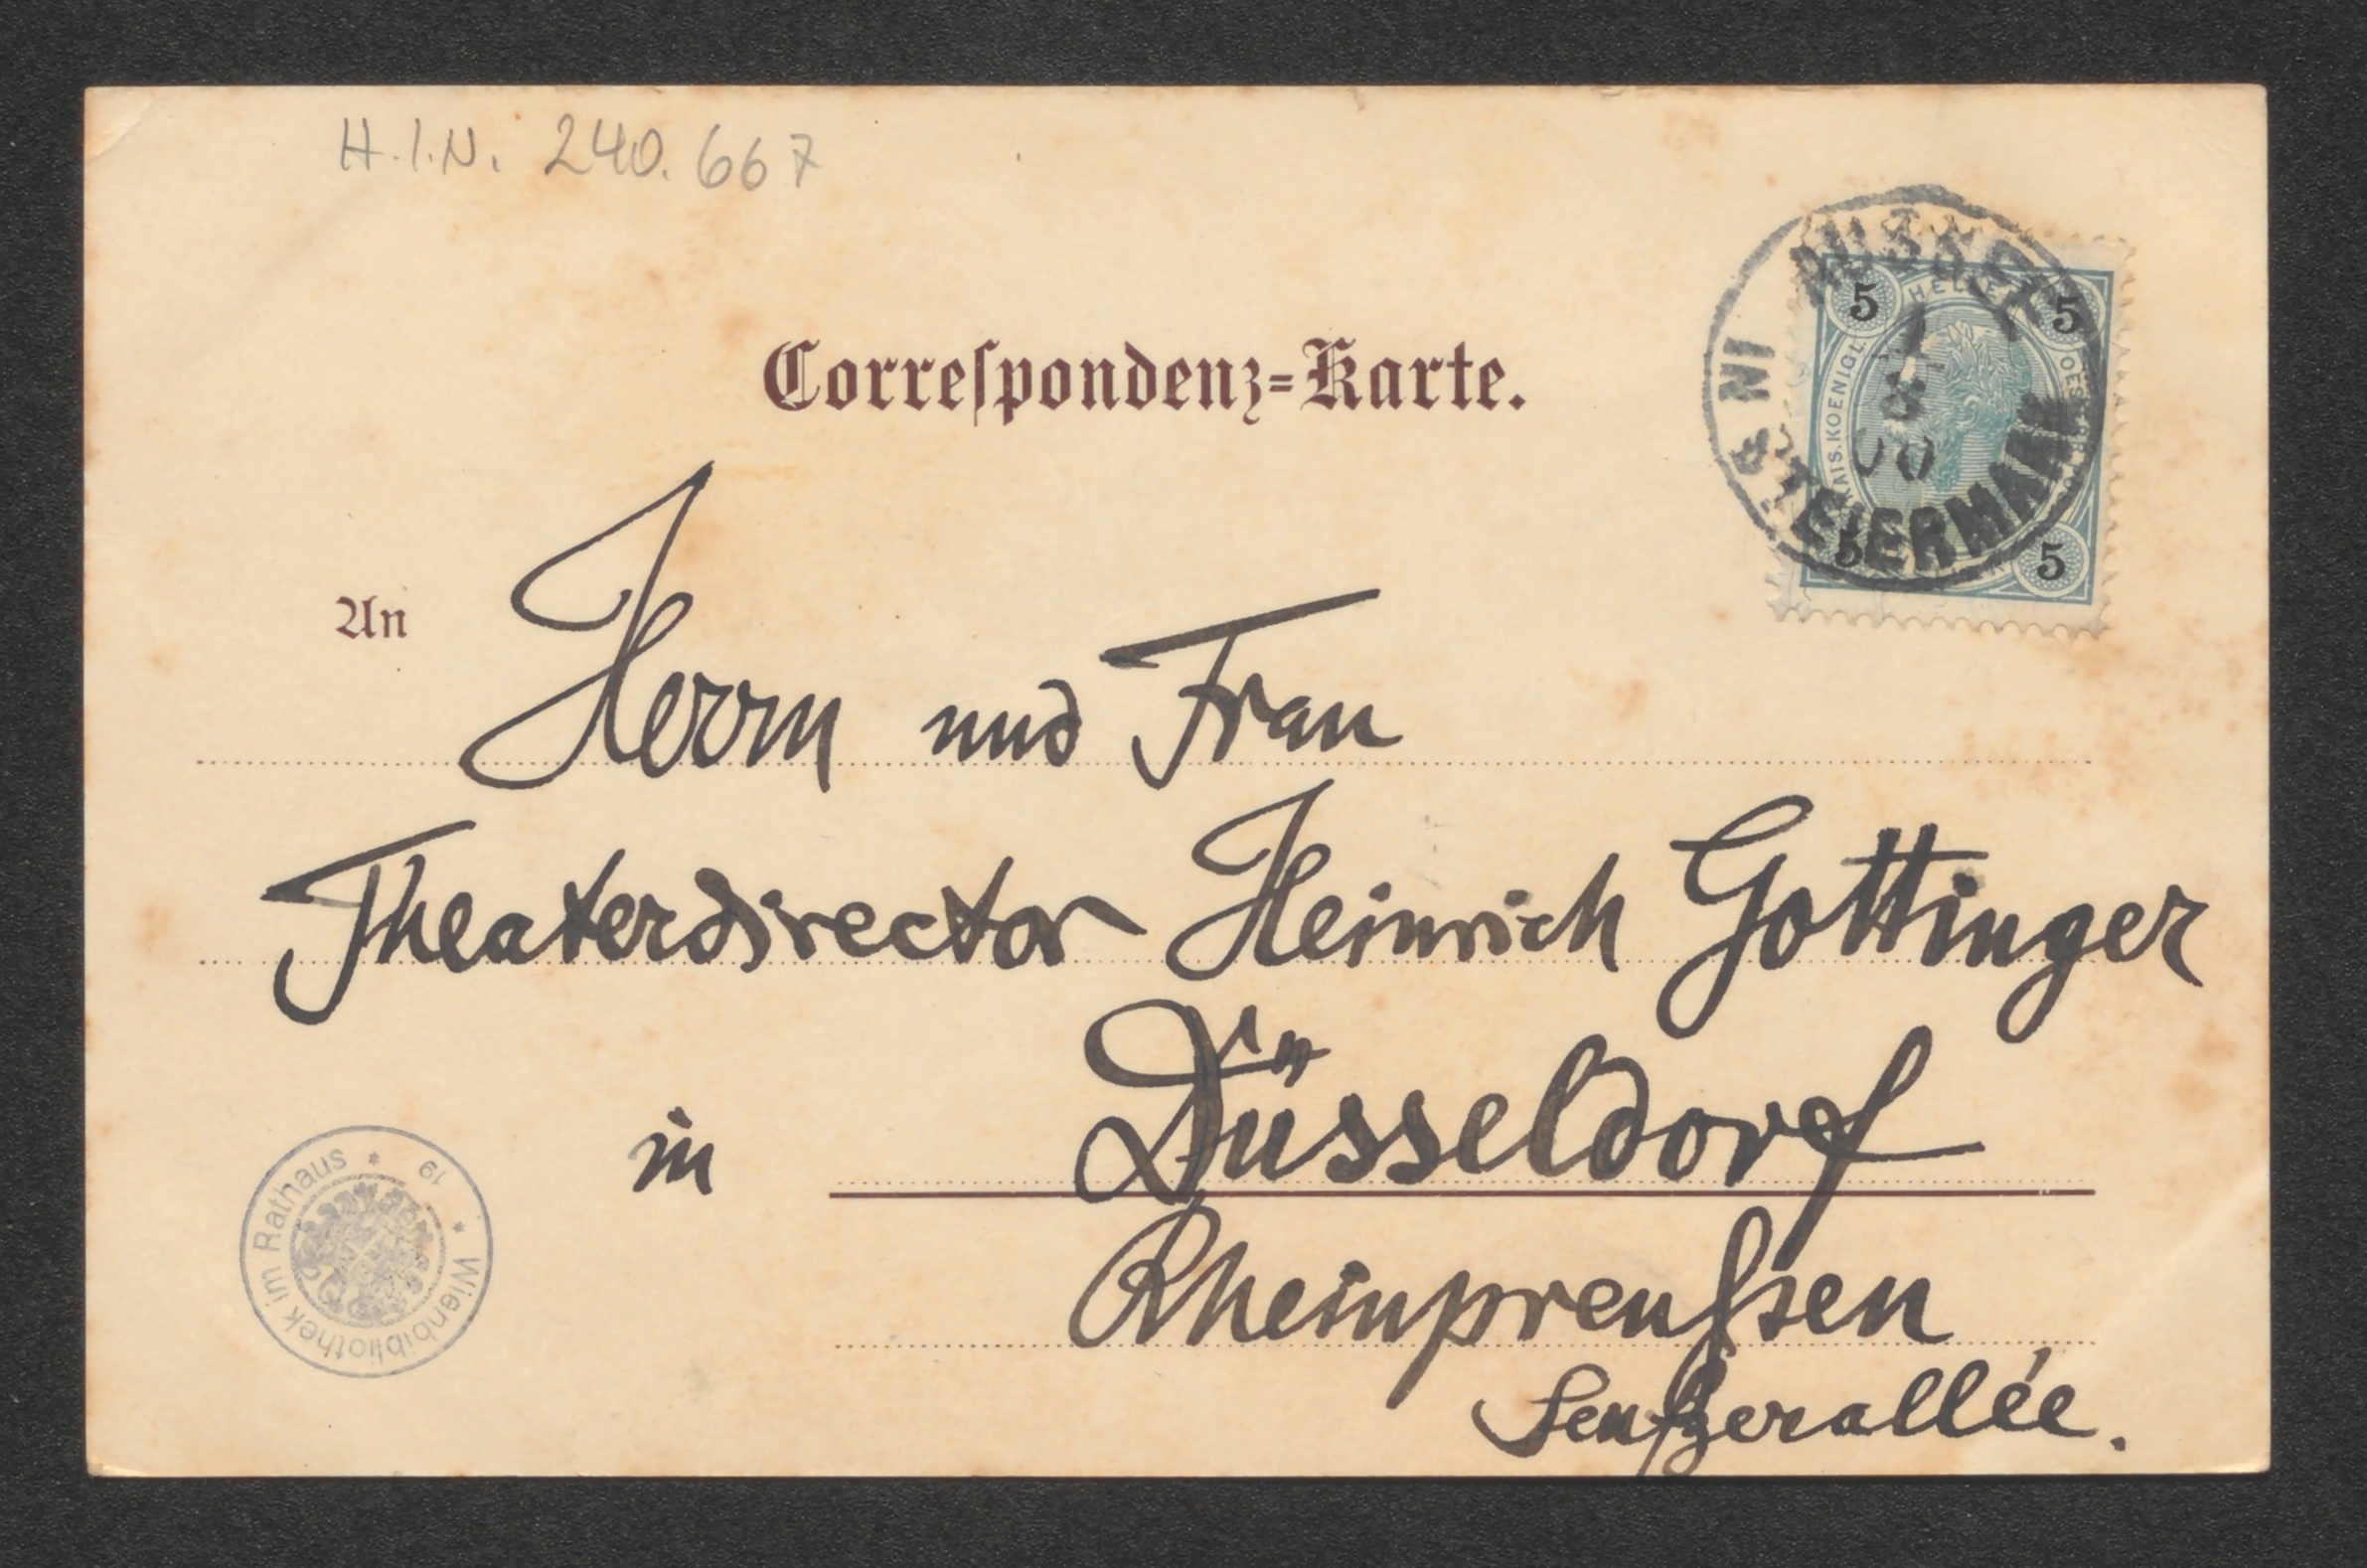 H.I.N. 240.667
Correspondenz-Karte.
AUSSEE
IN STEIERMARK
8
00
5 HELLER 5
KAIS.KOENIGL.
5 5
An Herrn und Frau
Theaterdirector Heinrich Gottinger
in Düsseldorf
Rheinpreußen
Seufzerallée.
Wienbibliothek im Rathaus * 19 *